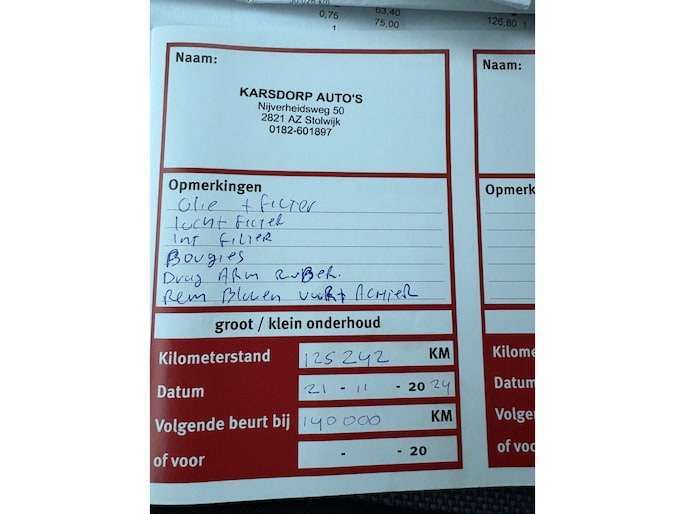 0,75 63,40
1 75,00 126,80 1
Naam:
KARSDORP AUTO'S
Nijverheidsweg 50
2821 AZ Stolwijk
0182-601897
Opmerkingen
Olie + Filter
lucht Filter
Int Filter
Bougies
Draag ARm RuBBeR.
Rem Blokken + ACHTER
groot / klein onderhoud
Kilometerstand 125242 KM
Datum 21 - 11 - 20 24
Volgende beurt bij 140000 KM
of voor - - 20
Naam:
Opmerk
Kilome
Datum
Volgen
of voor